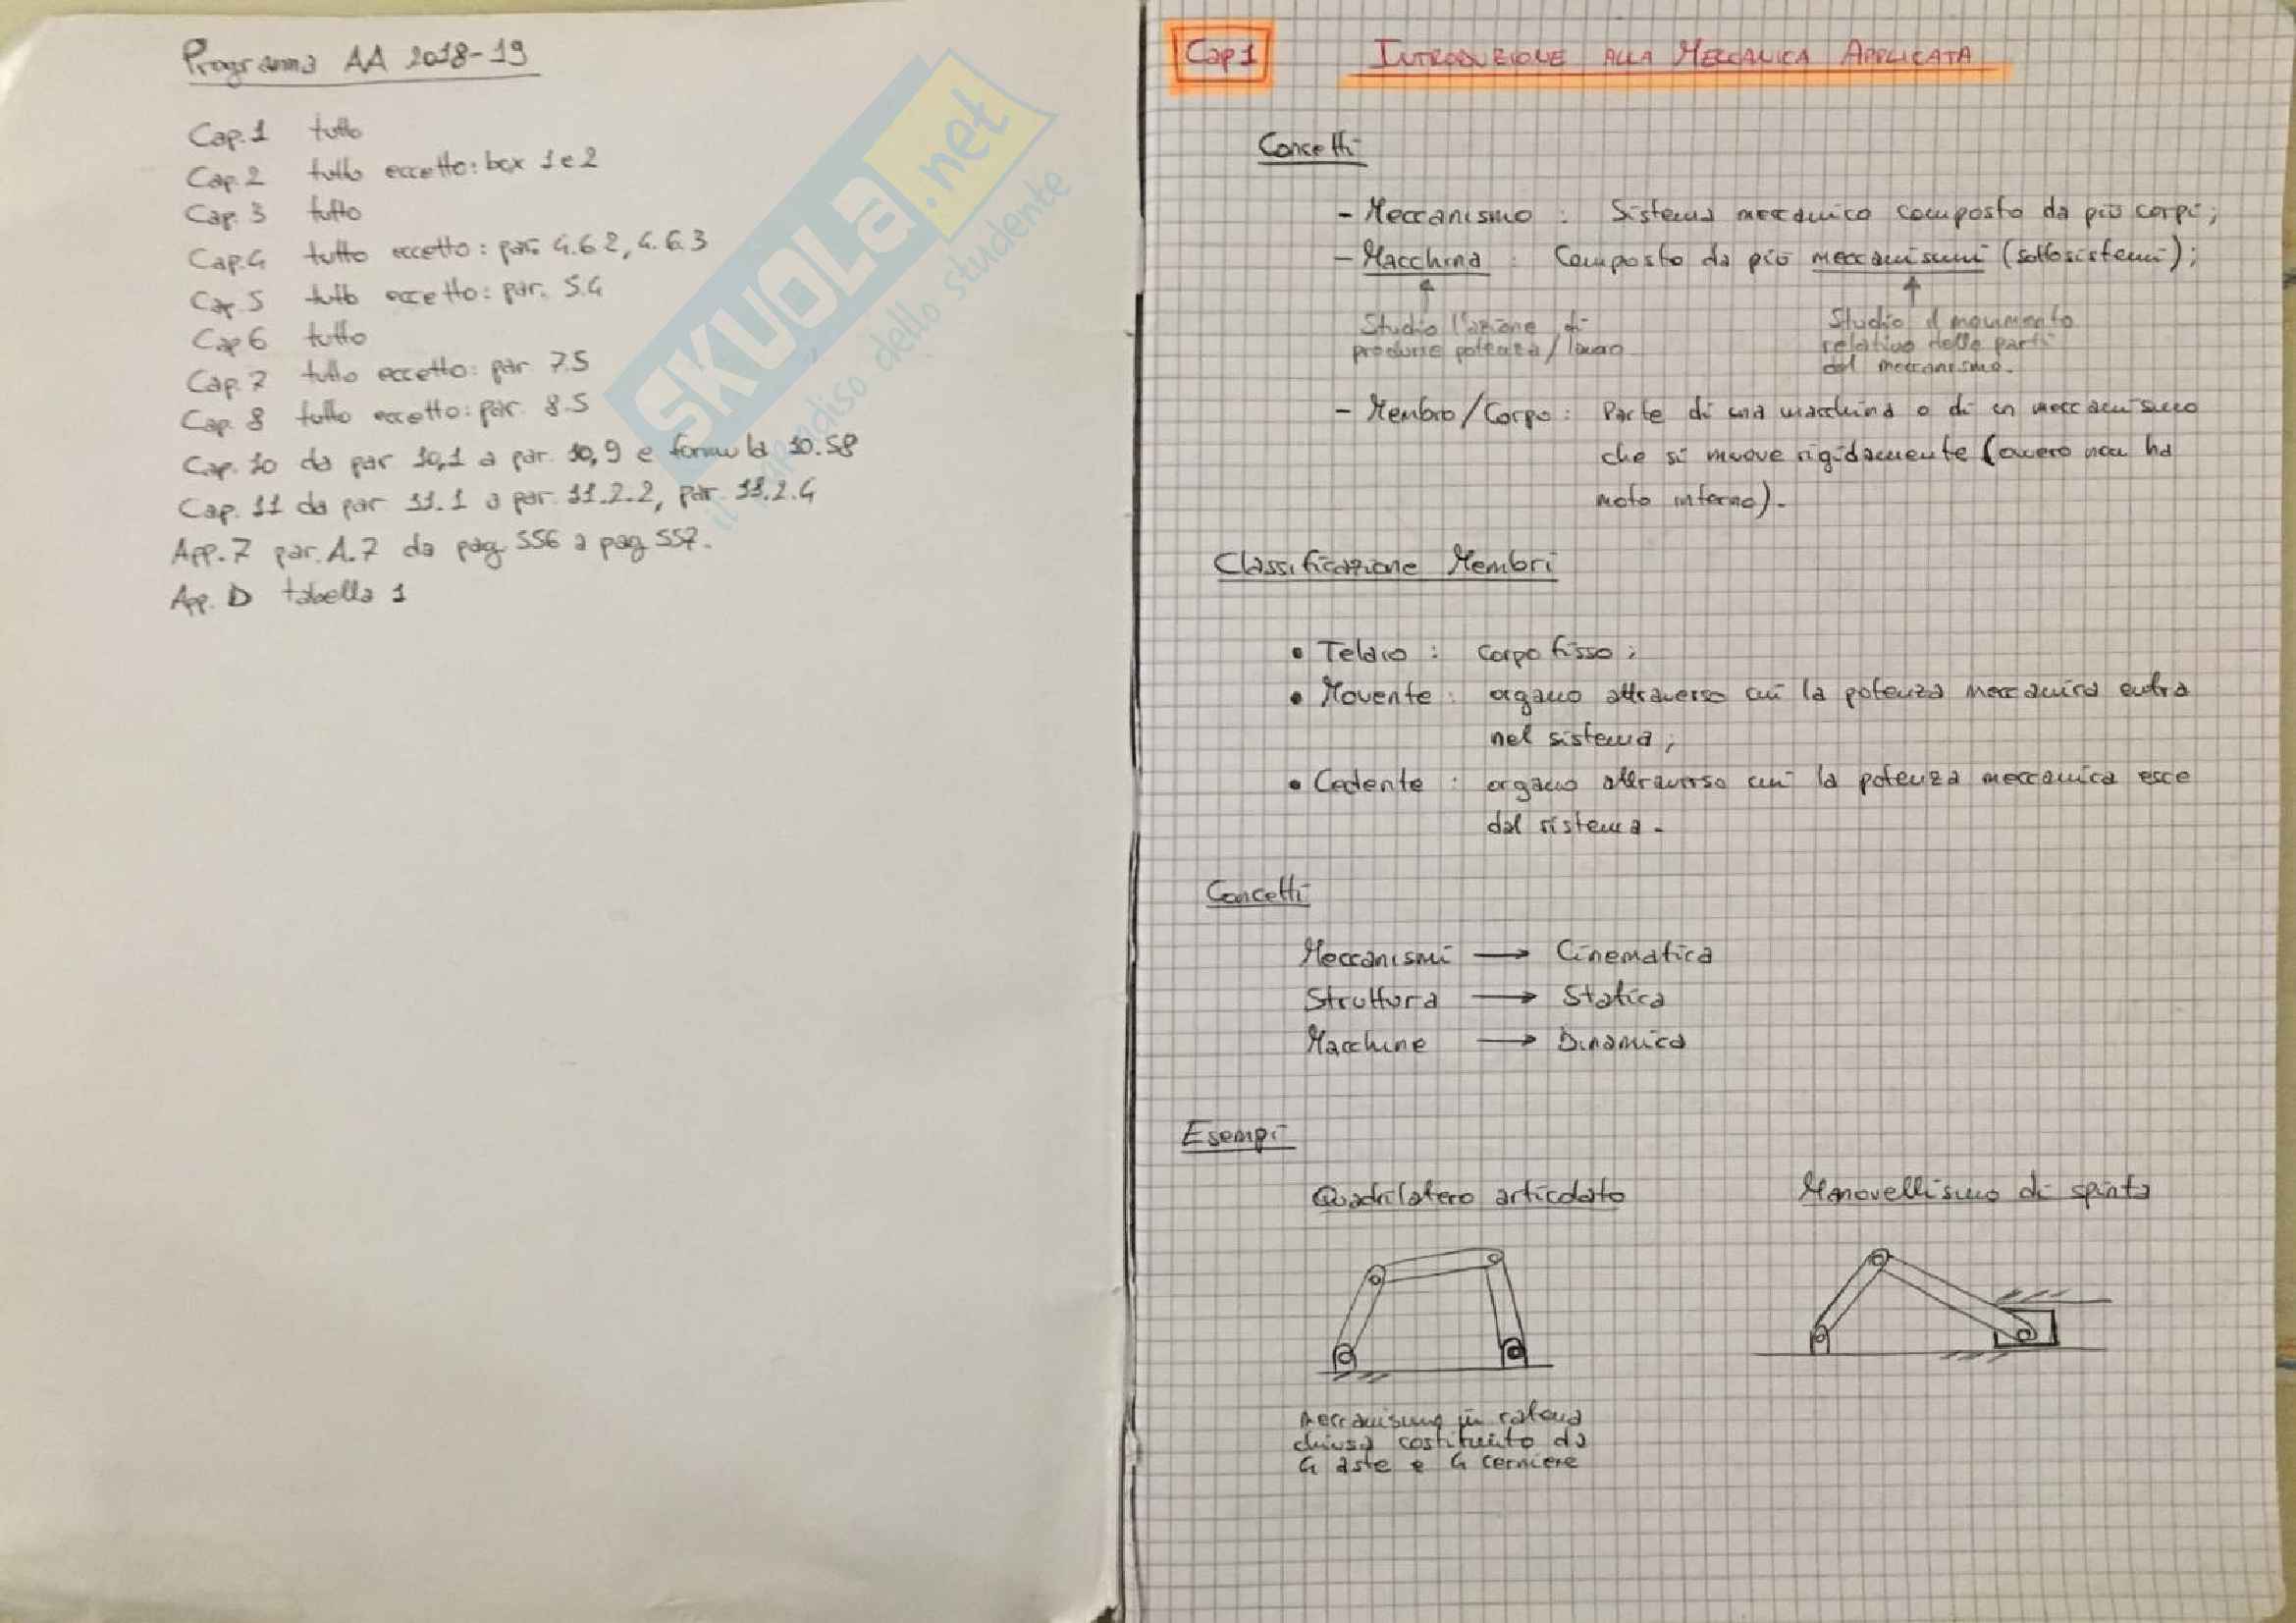 Programma AA 2018-19
Cap.1 tutto
Cap.2 tutto eccetto: box 1 e 2
Cap. 3 tutto
Cap.4 tutto eccetto: par. 4.6.2, 4.6.3
Cap.5 tutto eccetto: par. 5.4
Cap 6 tutto
Cap.7 tutto eccetto: par 7.5
Cap. 8 tutto eccetto: par. 8.5
Cap. 10 da par 10,1 a par. 10,9 e formula 10.58
Cap. 11 da par 11.1 a par. 11.2.2, par. 11.2.4
App.7 par. A.7 da pag 556 a pag 557.
App. D tabella 1
SKUOLA.net
il paradiso dello studente
Cap 1 INTRODUZIONE ALLA MECCANICA APPLICATA
Concetti
- Meccanismo : Sistema meccanico composto da più corpi;
- Macchina : Composto da più meccanismi (sottosistemi);
Studio l'azione di
produrre potenza/lavoro
Studio il movimento
relativo delle parti
del meccanismo.
- Membro/Corpo: Parte di una macchina o di un meccanismo
che si muove rigidamente (ovvero non ha
moto interno).
Classificazione Membri
• Telaio : corpo fisso;
• Movente : organo attraverso cui la potenza meccanica entra
nel sistema;
• Cedente : organo attraverso cui la potenza meccanica esce
dal sistema.
Concetti
Meccanismi → Cinematica
Struttura → Statica
Macchine → Dinamica
Esempi
Quadrilatero articolato
Manovellismo di spinta
Meccanismo in catena
chiusa costituito da
4 aste e 4 cerniere